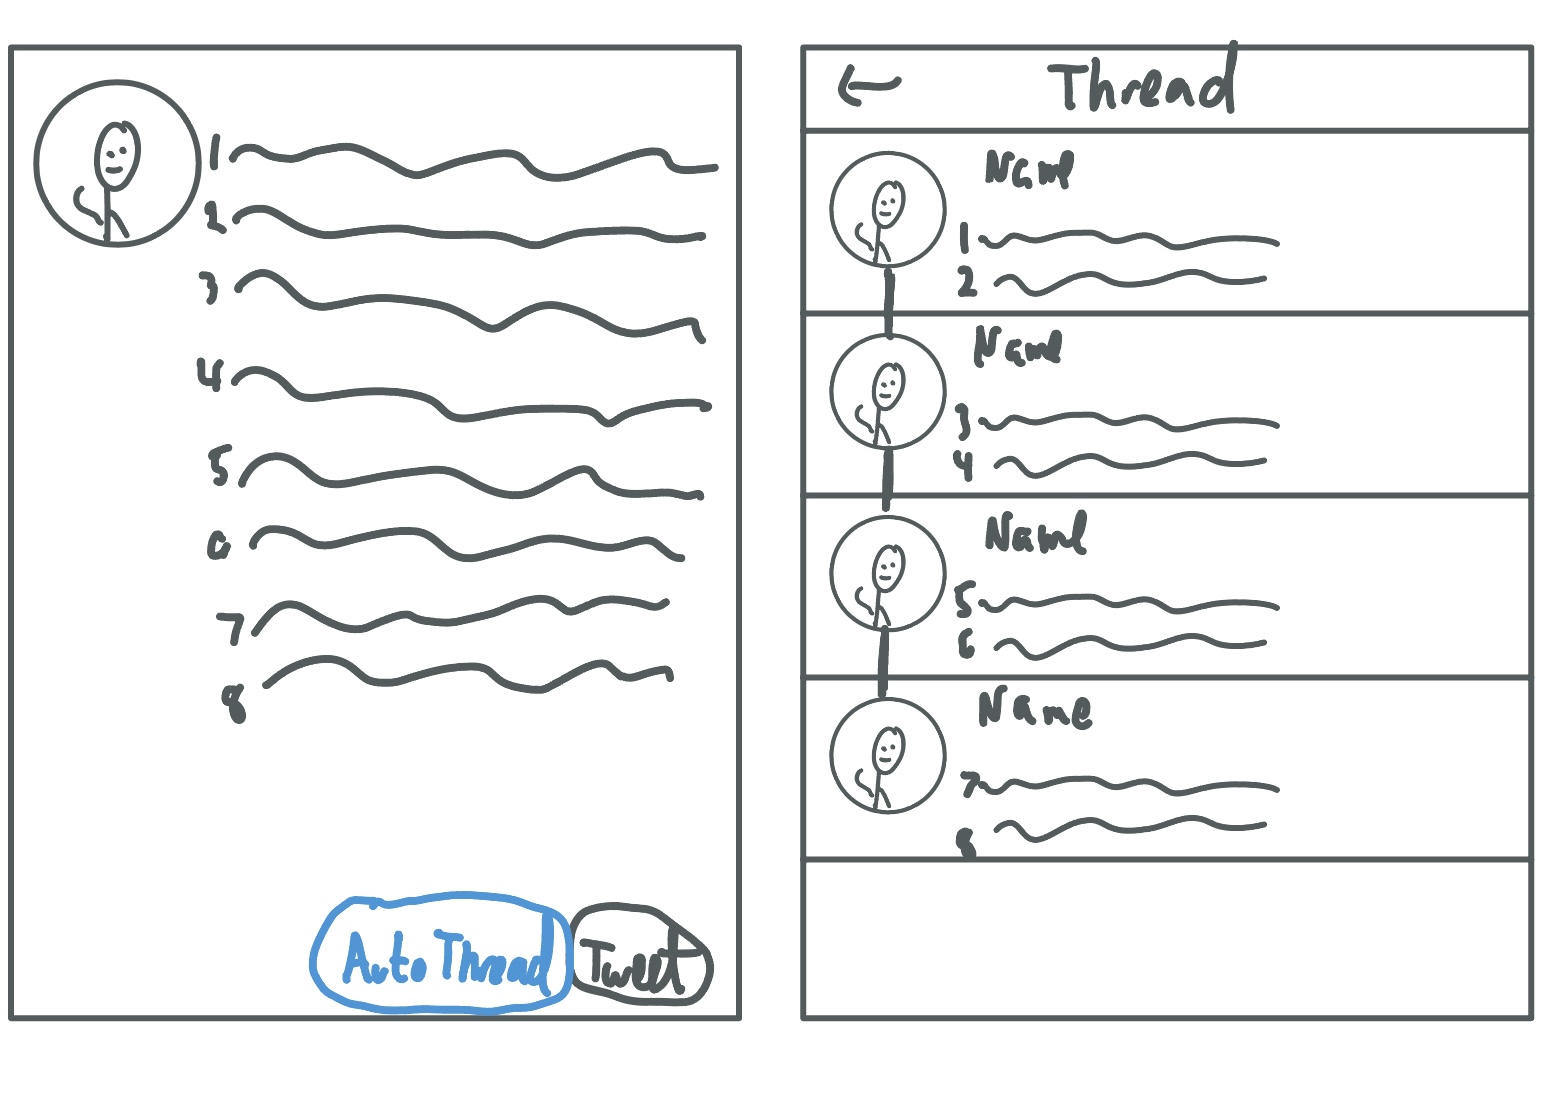 1
2
3
4
5
6
7
8
Auto Thread
Tweet
← Thread
Name
1
2
Name
3
4
Name
5
6
Name
7
8